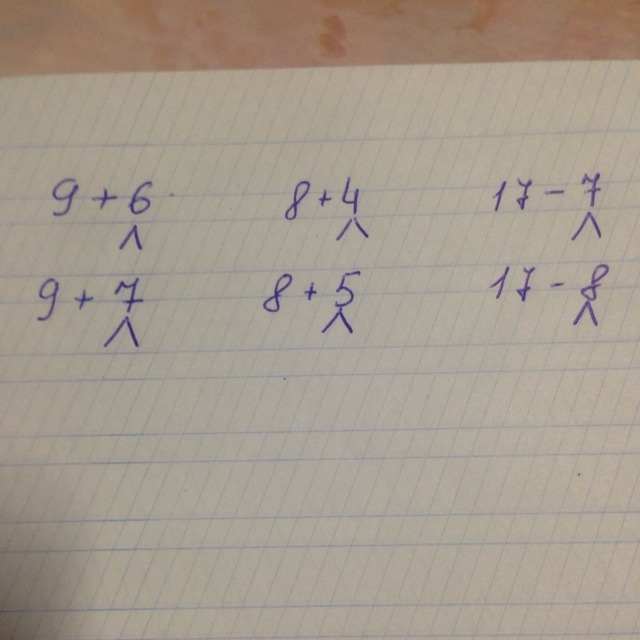 9 + 6 8 + 4 17 - 7
^ ^ ^
9 + 7 8 + 5 17 - 8
^ ^ ^